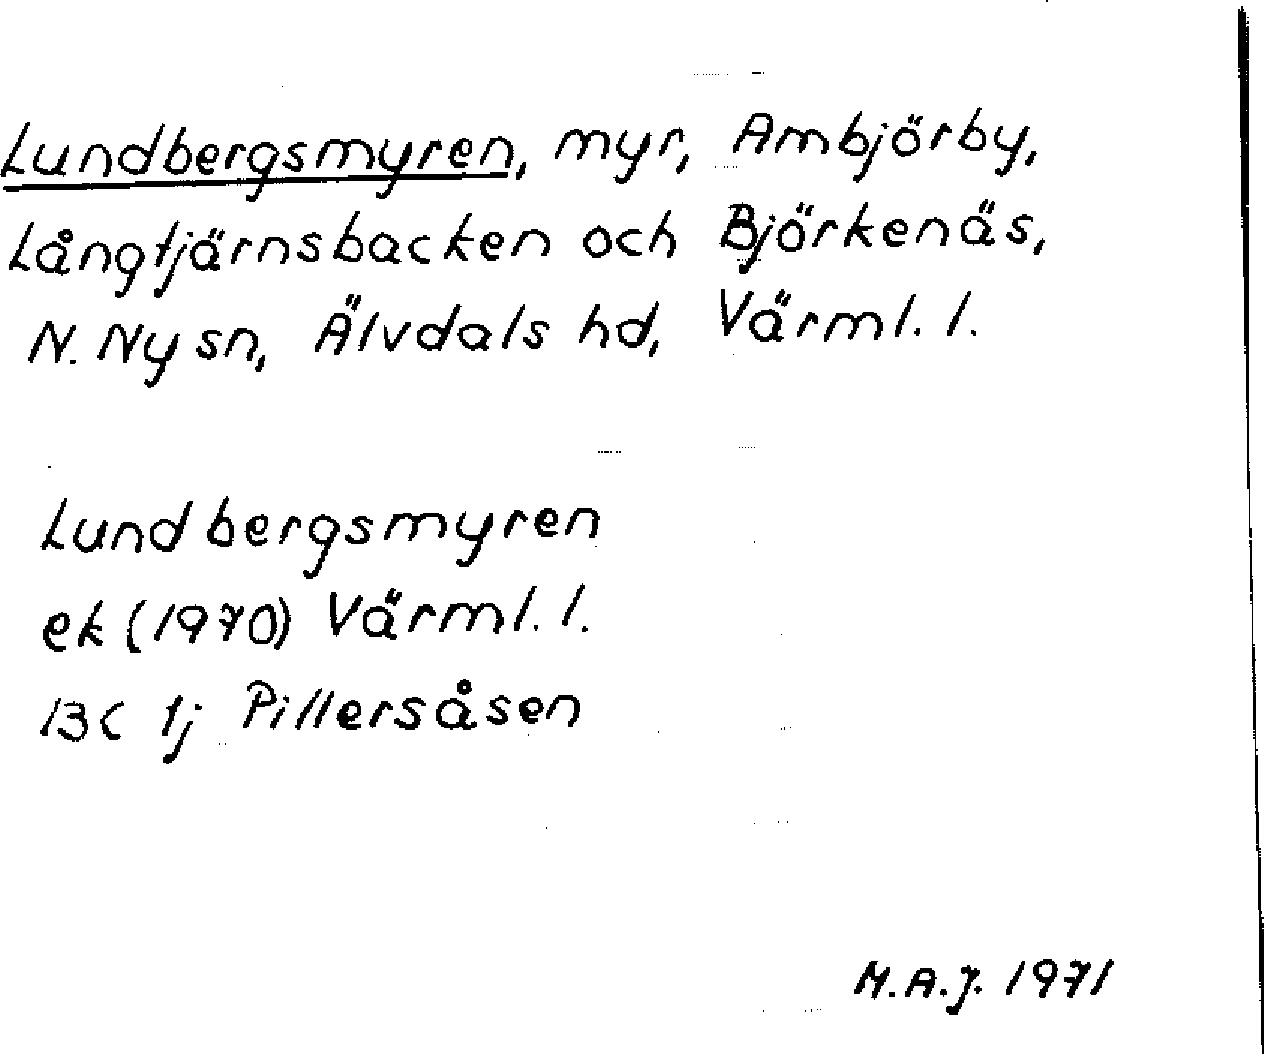 Lundbergsmyren, myr, Ambjörby,
Långtjärnsbacken och Björkenäs,
N. Ny sn, Älvdals hd, Värml. l.
Lundbergsmyren
ek (1970) Värml. l.
13C 1j Pillersåsen
M.A.J. 1971